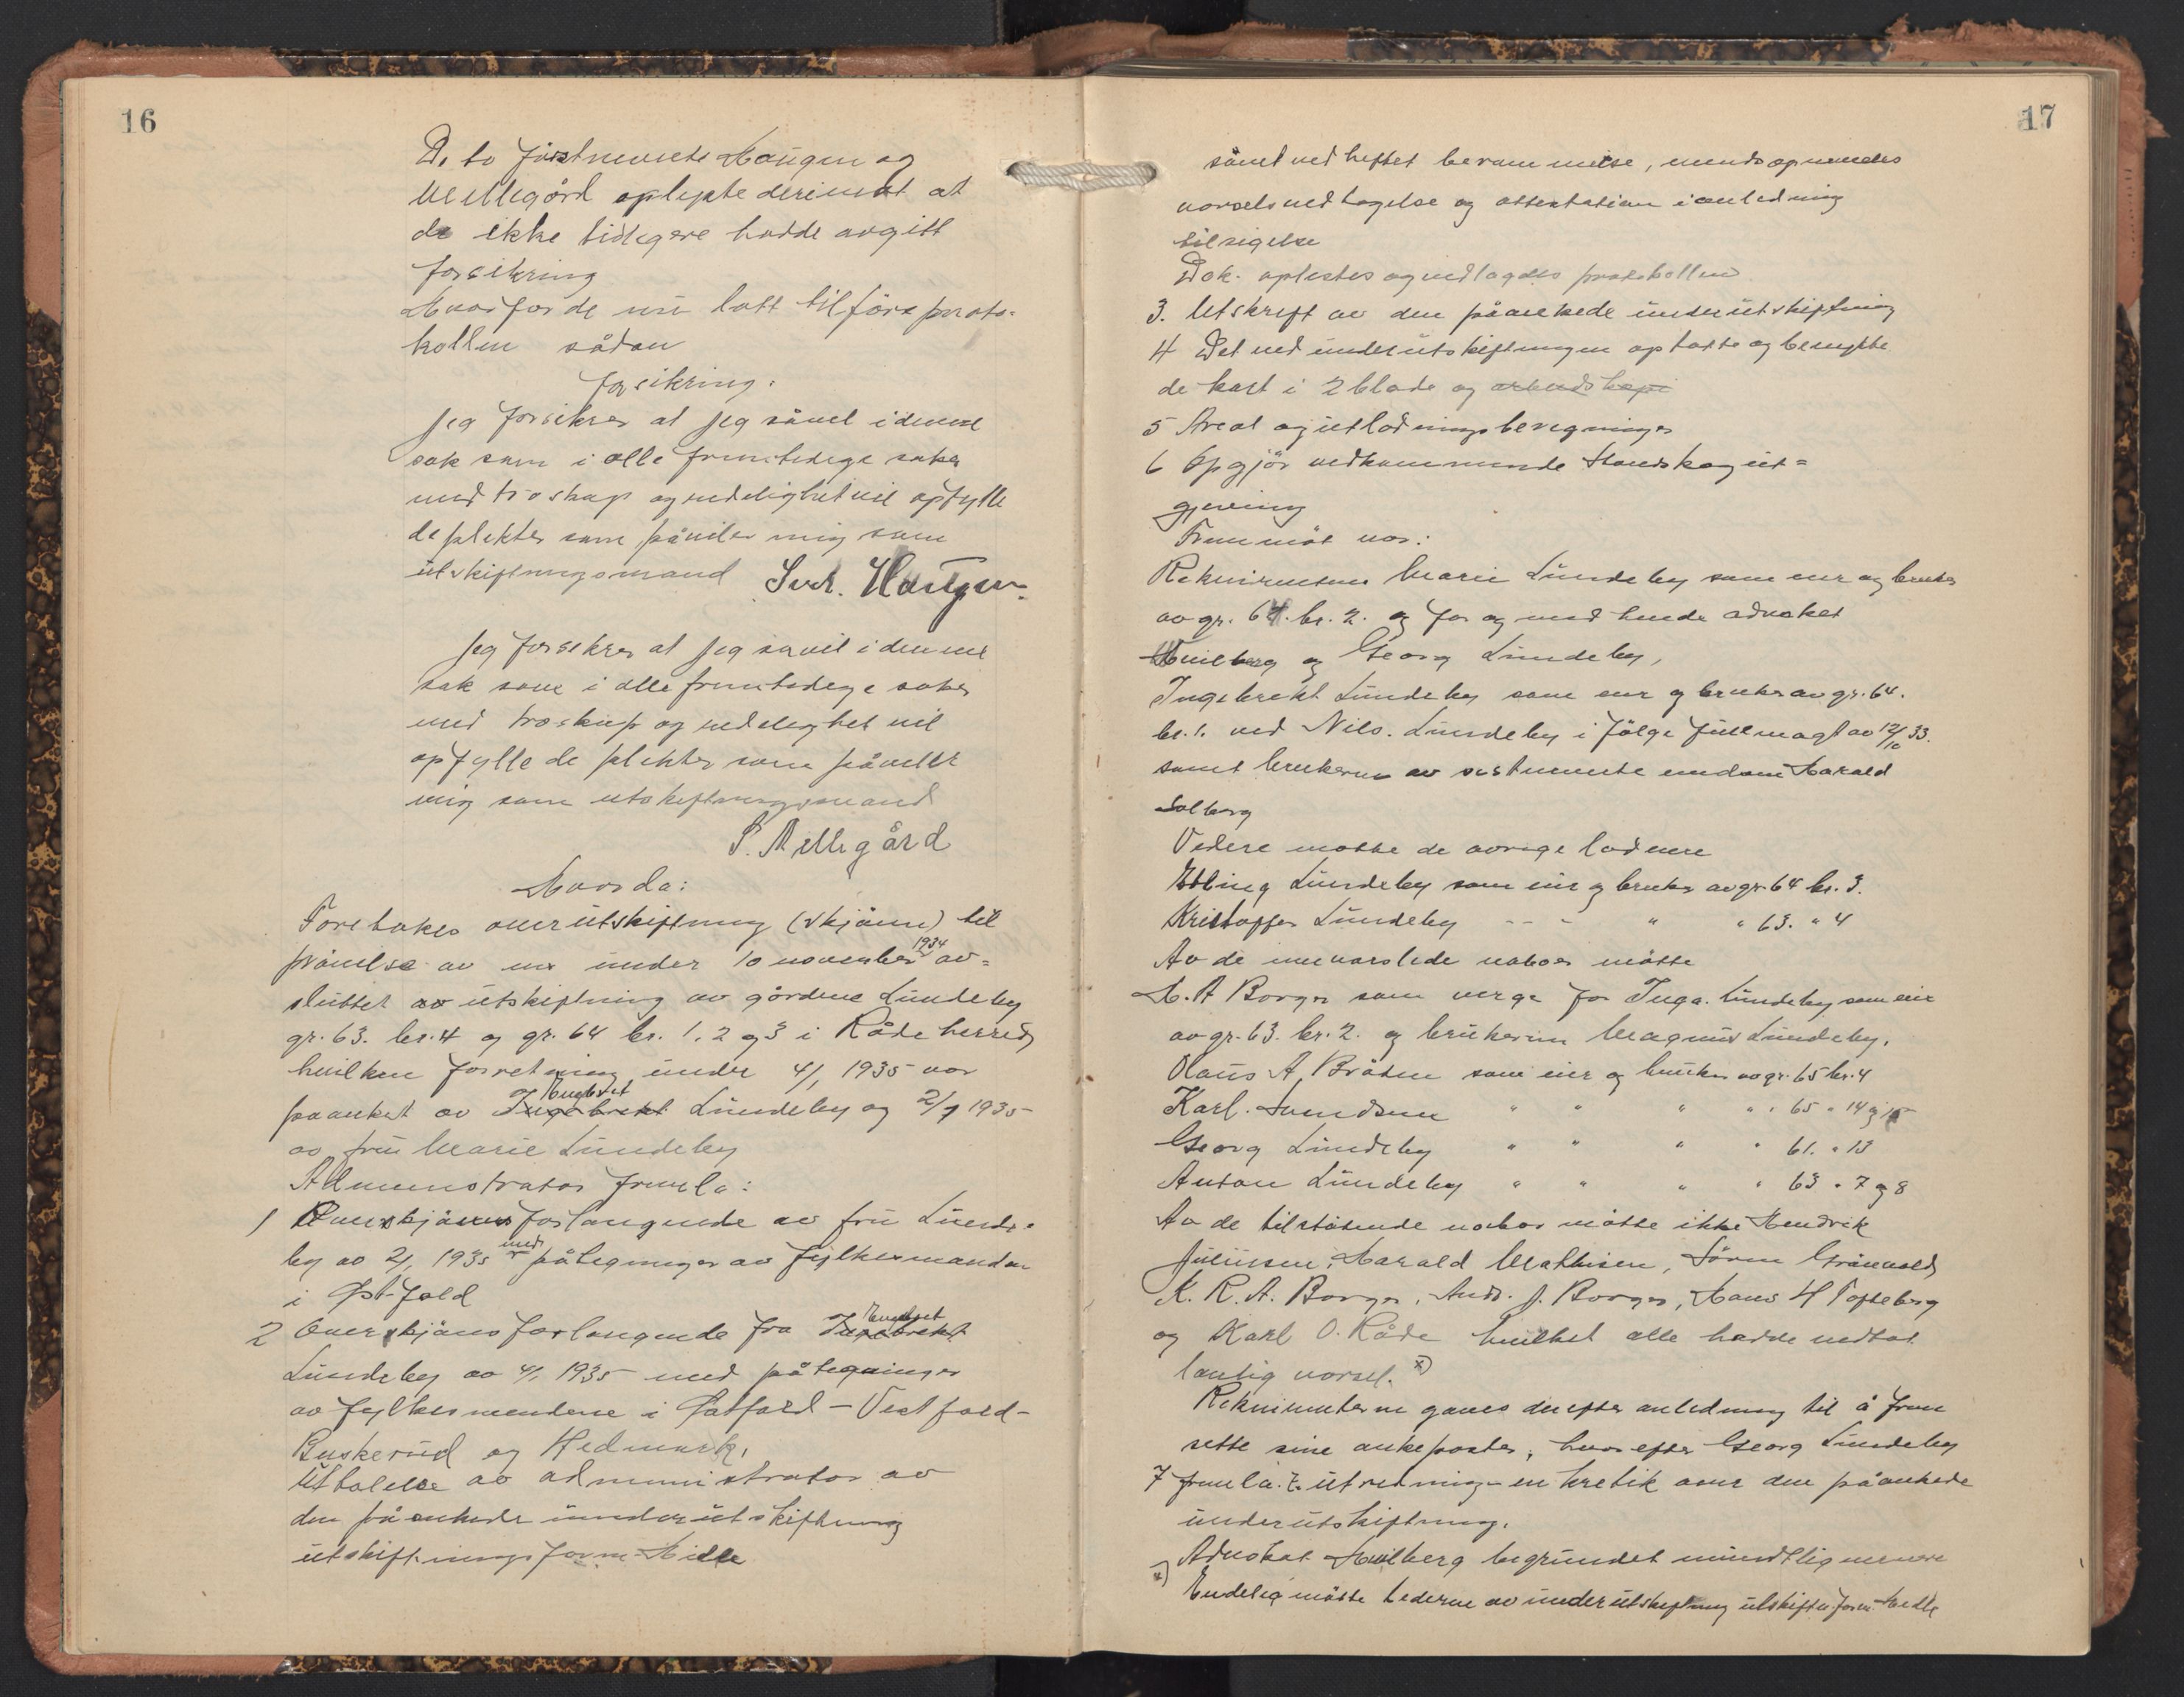 16
De to førstnevnte Haugen og
Mellegård oplyste derimot at
de ikke tidligere hadde avgitt
forsikring
Hvorfor de nu lott tilføre proto-
kollen sådan
forsikring:
Jeg forsikrer at jeg såvel i denne
sak som i alle fremtidige saker
med troskap og redelighet vil opfylle
de plikter som påviler mig som
utskiftningsmand Sevr. Haugen.
Jeg forsikrer at jeg såvel i denne
sak som i alle fremtidige saker
med troskap og redelighet vil
opfylle de plikter som påviler
mig som utskiftningsmand
S. Mellegård
Hvorda:
Foretokes overutskiftning (skjønn) til
prøvelse av en under 10 november 1934 av-
sluttet utskiftning av gårdene Lundeby
gr. 63. br. 4 og gr. 64 br. 1, 2 og 3 i Råde herred,
hvilken forretning under 4/1 1935 var
påanket av Engebret Lundeby og 2/1 1935
av fru Marie Lundeby
Administrator fremla:
1 Overskjønns forlangende av fru Lunde-
by av 2/1 1935 med påtegninger av fylkesmanden
i Østfold
2 Overskjønsforlangende fra Engebret
Lundeby av 4/1 1935 med påtegninger
av fylkesmendene i Østfold - Vestfold -
Buskerud og Hedmark,
Uttalelse av administrator av
den påankede underutskiftning
utskiftningsform. Hille
17
såmt vedheftet berammelse, mendsopnevnelse
varselsvedtagelse og attestation i anledning
tilsigelse
Dok. oplestes og vedlagdes protokollen
3. Utskrift av den påankede underutskiftning
4 Det ved underutskiftningen optatte og benyttede
kart i 2 blade og arbeidskopi
5 Areal og utlodningsberegninger
6 Opgjør vedkommende
Fremmøt var:
Rekvirenten Marie Lundeby som eier og bruker
av gr. 64. br. 2. og for og med hende advokat
Hvilberg og Georg Lundeby,
Ingebrekt Lundeby som eier og bruker av gr. 64.
br. 1. ved Nils. Lundeby i følge fullmagt av 12/10 33.
samt brukeren av sistnevnte eiendom Harald
Solberg
Videre møtte de øvrige lodeiere
Edling Lundeby som eier og bruker av gr. 64 br. 3.
Kristoffer Lundeby - - - " " 63. " 4
Av de innvarslede naboer møtte
H. A Borge som verge for Inga. Lundeby som eier
av gr. 63. br. 2. og brukeren Magnus Lundeby.
Olaus A. Bråten som eier og bruker av gr. 65 br. 4
Karl. Svendsen " " " " " 65 " 14 og 15
Georg Lundeby " " " " 61. " 13
Anton Lundeby " " " " 63 " 7 og 8
Av de tilstøtende naboer møtte ikke Hendrik
Juliussen, Harald Mathisen, Søren Grønvold,
K. R. A. Borge, Andr. J. Borge, Hans H Tofteberg
og Karl O. Råde hvilket alle hadde vedtat
lovlig varsel. x)
Rekvirenterne gaves derefter anledning til å frem
sette sine ankeposter, hvorefter Georg Lundeby
7 fremla utredning - en kretik over den påankede
underutskiftning.
Advokat Hvilberg begrundet mundtlig
x) Endelig møtte lederen av underutskiftning utskiftn. form. Hille